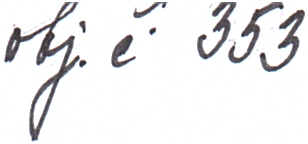 obj. č. 353